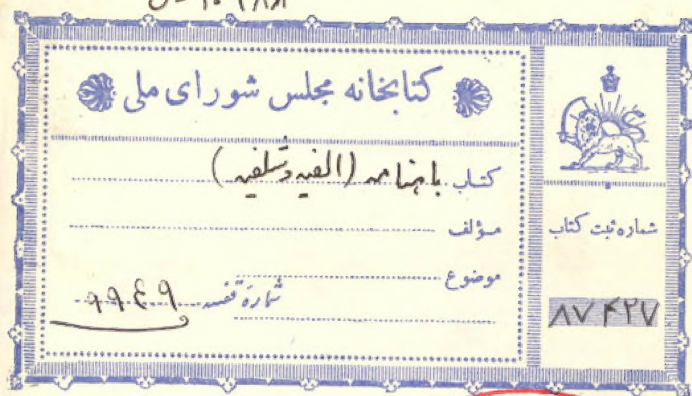 کتابخانه مجلس شورای ملی
کتاب باهنامه (الفیه و شلفیه)
مؤلف
موضوع
شماره قفسه ۹۹۴۹
شماره ثبت کتاب
۸۷۴۲۷